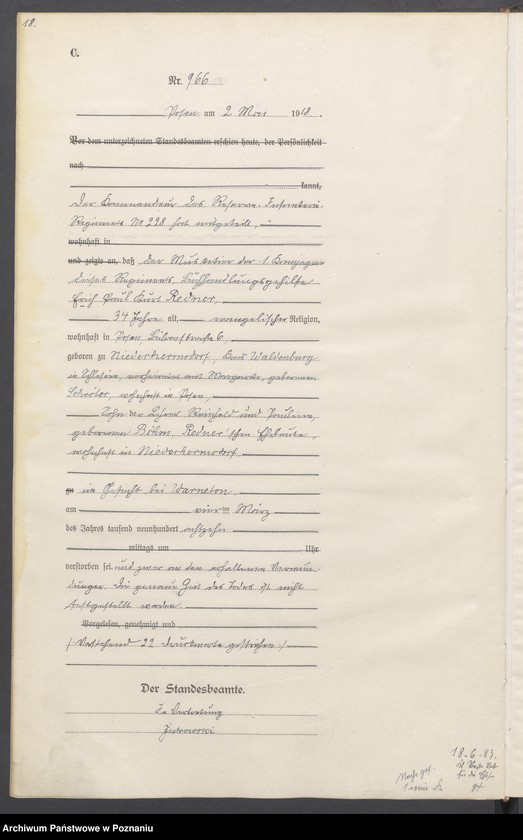 18.
C.
Nr. 966
Posen am 2. Mai 1918.
Vor dem unterzeichneten Standesbeamten erschien heute, der Persönlichkeit
nach
kannt,
Der Kommandeur des Reserve-Infanterie-
Regiments No 228 hat mitgeteilt,
wohnhaft in
und zeigte an, daß der Musketier der 1. Kompagnie
dieses Regiments, Buchhandlungsgehilfe
Erich Paul Kurt Redner,
34 Jahre alt, evangelischer Religion,
wohnhaft in Posen, 6,
geboren zu Niederhermsdorf, Kreis Waldenburg
in Schlesien, verheiratet mit Margarete, geborenen
Schröter, wohnhaft in Posen,
Sohn der Reinhold und Pauline,
geborenen Böhm, Redner'schen Eheleute,
wohnhaft in Niederhermsdorf
zu im Gefecht bei Warneton
am vierten März
des Jahres tausend neunhundert achtzehn
mittags um Uhr
verstorben sei und zwar an den erhaltenen Verwun-
dungen. Die genaue Zeit des Todes ist nicht
festgestellt worden.
Vorgelesen, genehmigt und
/ Vorstehend 22 Druckworte gestrichen /
Der Standesbeamte.
In Vertretung
Zutrowski
18.6.83.
Archiwum Państwowe w Poznaniu